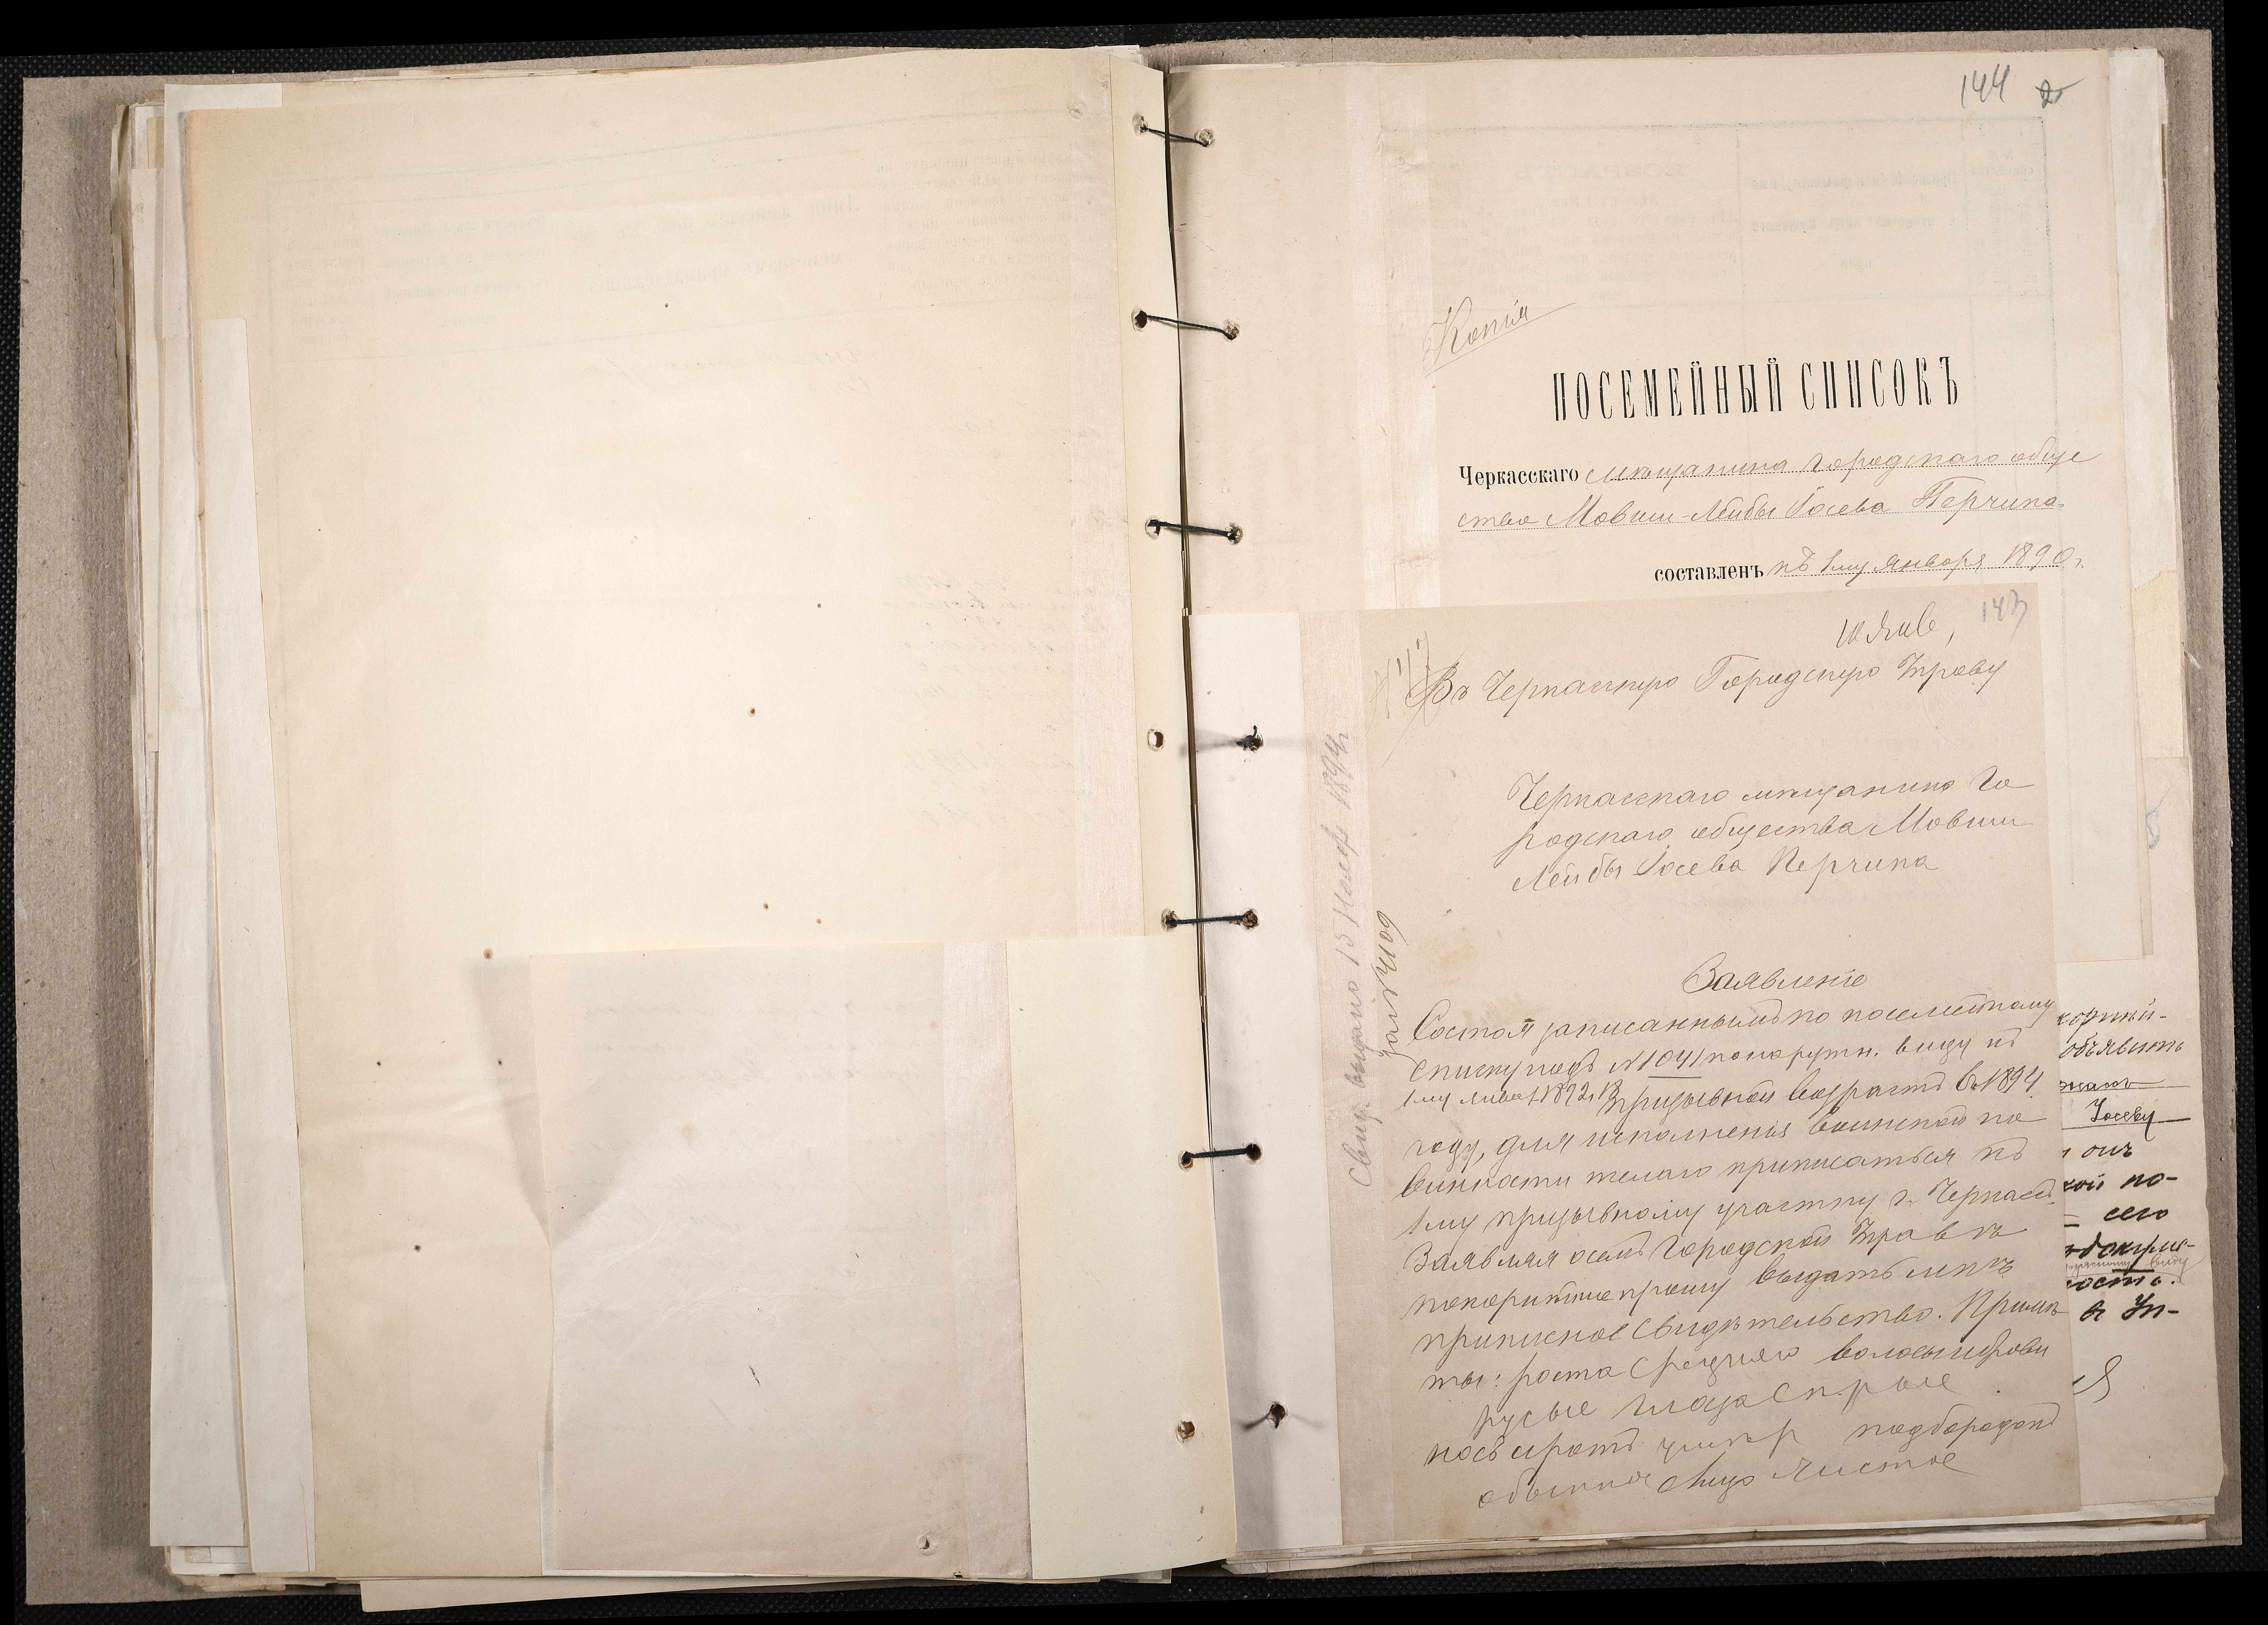 144
Копія
ПОСЕМЕЙНЫЙ СПИСОКЪ
Черкасскаго мѣщанина городскаго обще
ства Мовши-Лейбы Іосева Перчика
составленъ къ 1му января 1890 г.
143
Въ Черкасскую Городскую Управу
Черкасскаго мѣщанина Го
родскаго общества Мовши
Лейбы Іосева Перчика
Заявленіе
Состоя записаннымъ по посемейному
списку подъ №1041 призывной возрастъ въ 1894
году, для исполненія воинской по
винности желаю приписаться къ
1му призывному участку г. Черкассъ.
Заявляя о семъ Городской Управѣ
покорнѣйше прошу выдать мнѣ
приписное свидѣтельство. Примѣ
ты: роста средняго волосы и брови
русые глаза сѣрые
носъ и ротъ подбородокъ
лицо чистое
Свид. выдано 15 1894 г.
за № 4109
объявить
Іосеву
онъ
кой по-
сего
виду
въ Уп-